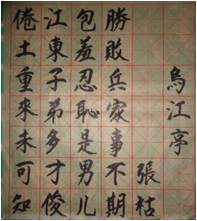 烏江亭
張枯
勝敗兵家事不期
包羞忍恥是男儿
江東子弟多才俊
倦土重來未可知